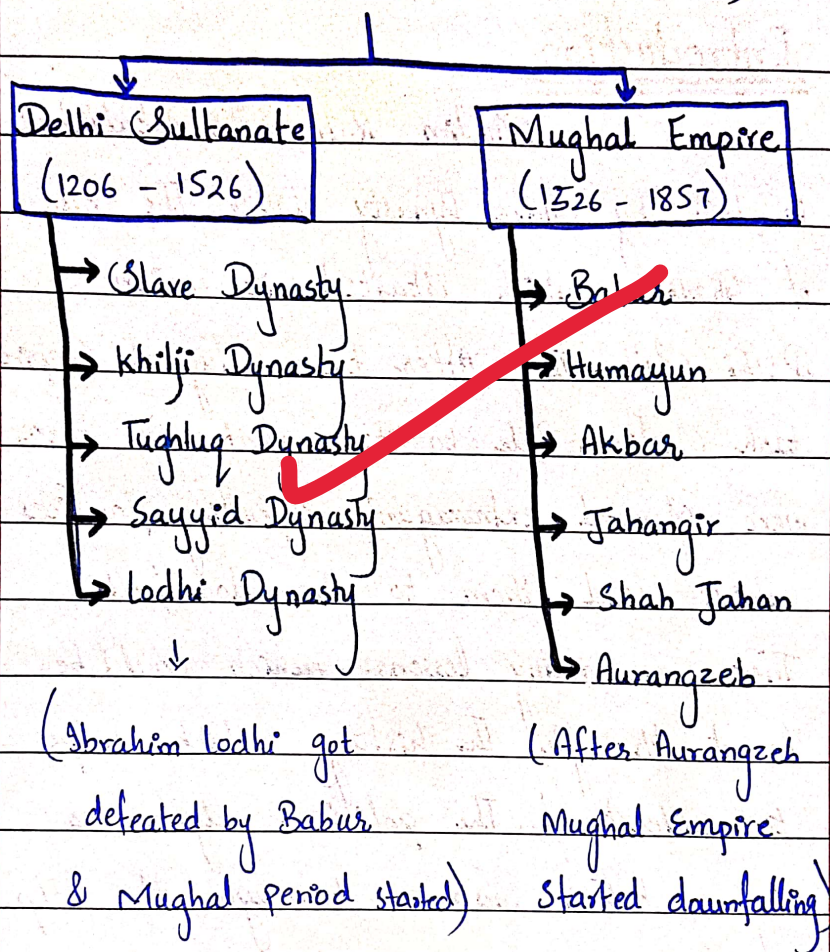 Delhi Sultanate
(1206 - 1526)
→ Slave Dynasty
→ Khilji Dynasty
→ Tughluq Dynasty
→ Sayyid Dynasty
→ Lodhi Dynasty
↓
(Ibrahim Lodhi got
defeated by Babur
& Mughal period started)
Mughal Empire
(1526 - 1857)
→ Babur
→ Humayun
→ Akbar
→ Jahangir
→ Shah Jahan
→ Aurangzeb
(After Aurangzeb
Mughal Empire
started downfalling)